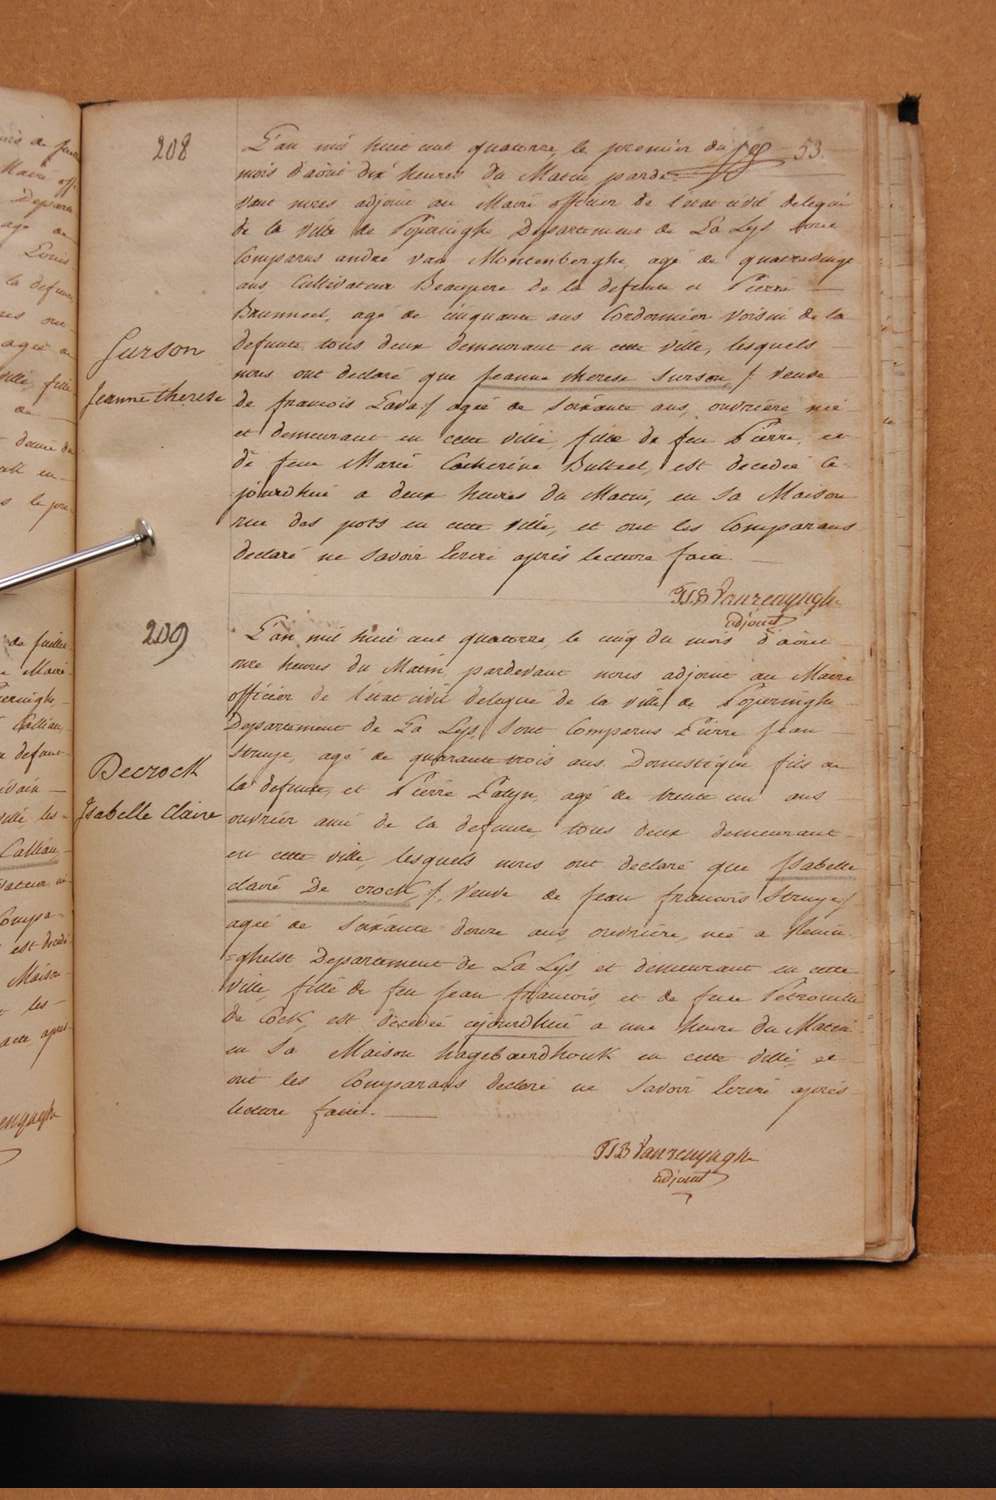 208
L'an mil huit cent quatorze, le premier du 53.
mois d'août dix heures du Matin parde-
vant nous adjoint au Maire officier de l'etat civil delegué
de la ville de Poperinghe Departement de La Lys sont
Comparus andré van Mortenberghe, agé de quatrevingt
ans Cultivateur Beaupere de la defunte et Pierre
Brunneel, agé de cinquante ans Cordonnier voisin de la
defunte, tous deux demeurant en cette ville, lesquels
nous ont declaré que Jeanne therese Surson, / veuve
de francois Lava / agée de soixante ans, ouvrière née
et demeurant en cette ville, fille de feu Pierre, et
de feue Marie Catherine Bulteel, est decedée ce-
jourdhui a deux heures du Matin, en sa Maison
rue des pots en cette ville, et ont les Comparans
declaré ne savoir Ecrire après lecture faite.
Surson
Jeanne therese
PJB Vanrenynghe
adjoint
209
L'an mil huit cent quatorze, le cinq du mois d'aout
onze heures du Matin, pardevant nous adjoint au Maire
officier de l'etat civil delegué de la ville de Poperinghe
Departement de La Lys, sont Comparus Pierre Jean
Struye, agé de quarante trois ans Domestique fils de
la defunte, et Pierre Patyn, agé de trente un ans
ouvrier ami de la defunte, tous deux demeurant
en cette ville, lesquels nous ont declaré que Isabelle
claire De crock, / veuve de Jean francois Struye /
agée de soixante douze ans, ouvrière, née a Renin-
=ghelst Departement de La Lys et demeurant en cette
ville, fille de feu Jean francois, et de feue Petronille
de Cock, est decedée cejourdhui a une heure du Matin
en sa Maison hagebaerdhouk en cette ville, et
ont les Comparans declaré ne savoir Ecrire après
lecture faite.
Decrock
Isabelle Claire
PJB Vanrenynghe
adjoint